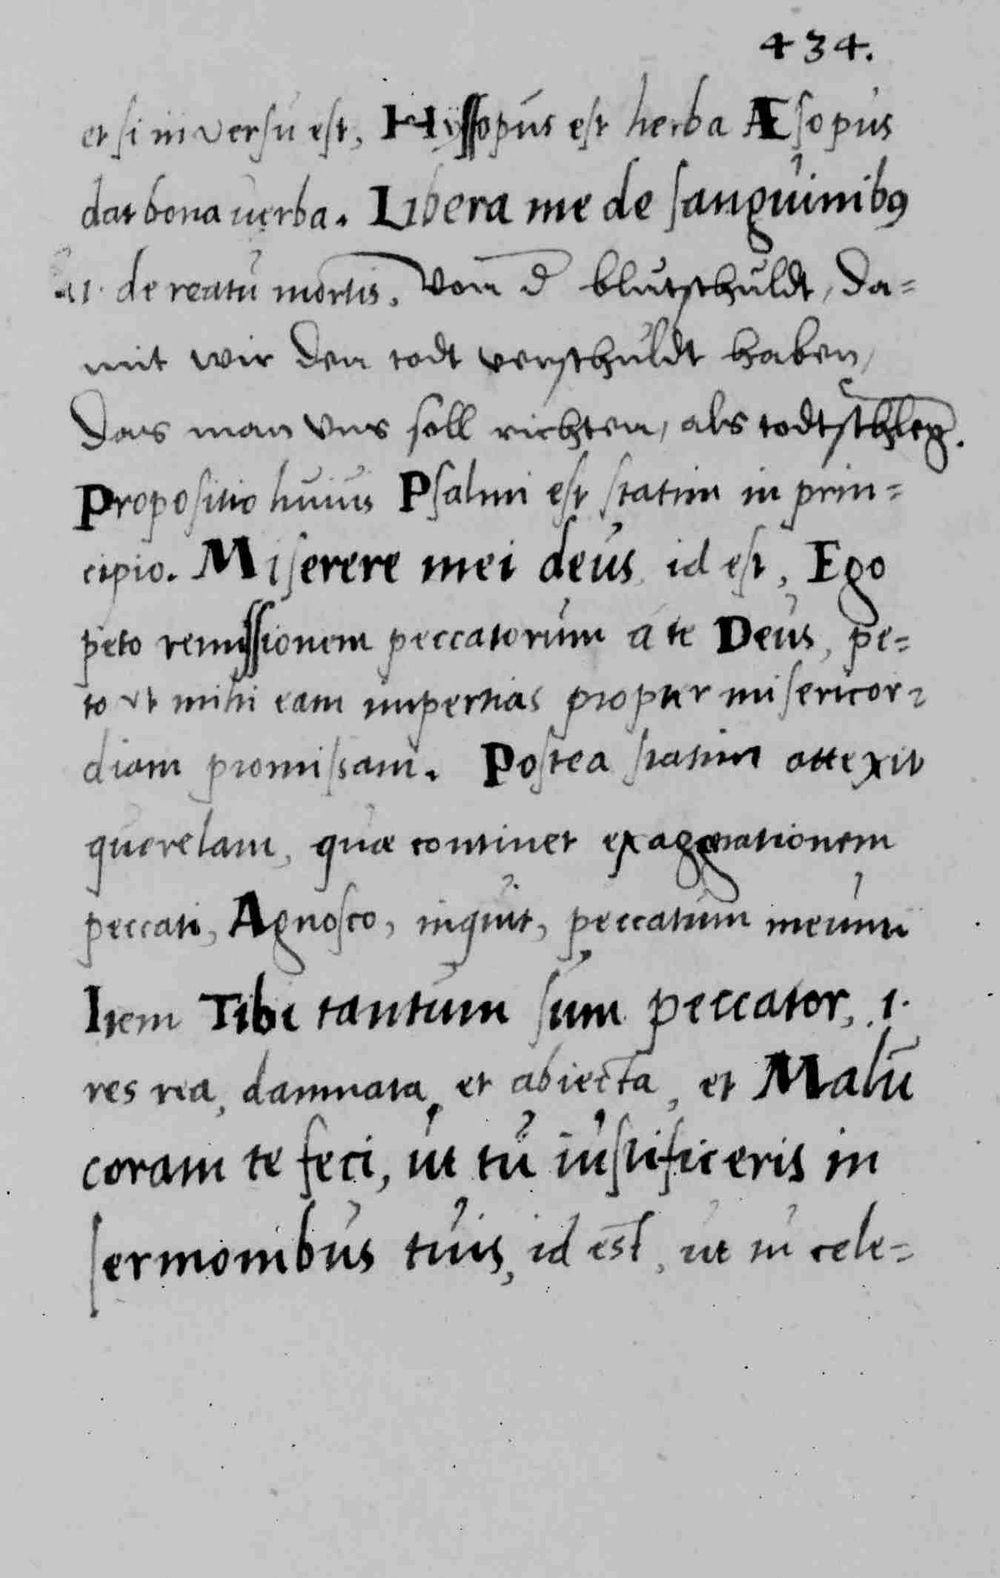 434.
et si in versu est, Hyssopus est herba Æsopus
dat bona uerba. Libera me de sanguinibꝰ
.i. de reatu mortis. Von d̄ blutschuldt, da=
mit wir den todt verschuldt haben,
Das man vns soll richten, als todtschleg̃.
Propositio huius Psalmi est statim in prin=
cipio. Miserere mei deus, id est, Ego
peto remissionem peccatorum a te Deus, pe=
to vt mihi eam impertias propter misericor=
diam promissam. Postea statim attexit
querelam, quæ continet exaggerationem
peccati, Agnosco, inquit, peccatum meum
Item Tibi tantum sum peccator, .i.
res rea, damnata, et abiecta, et Malū
coram te feci, ut tu iustificeris in
sermonibus tuis, id est, ut in cele=